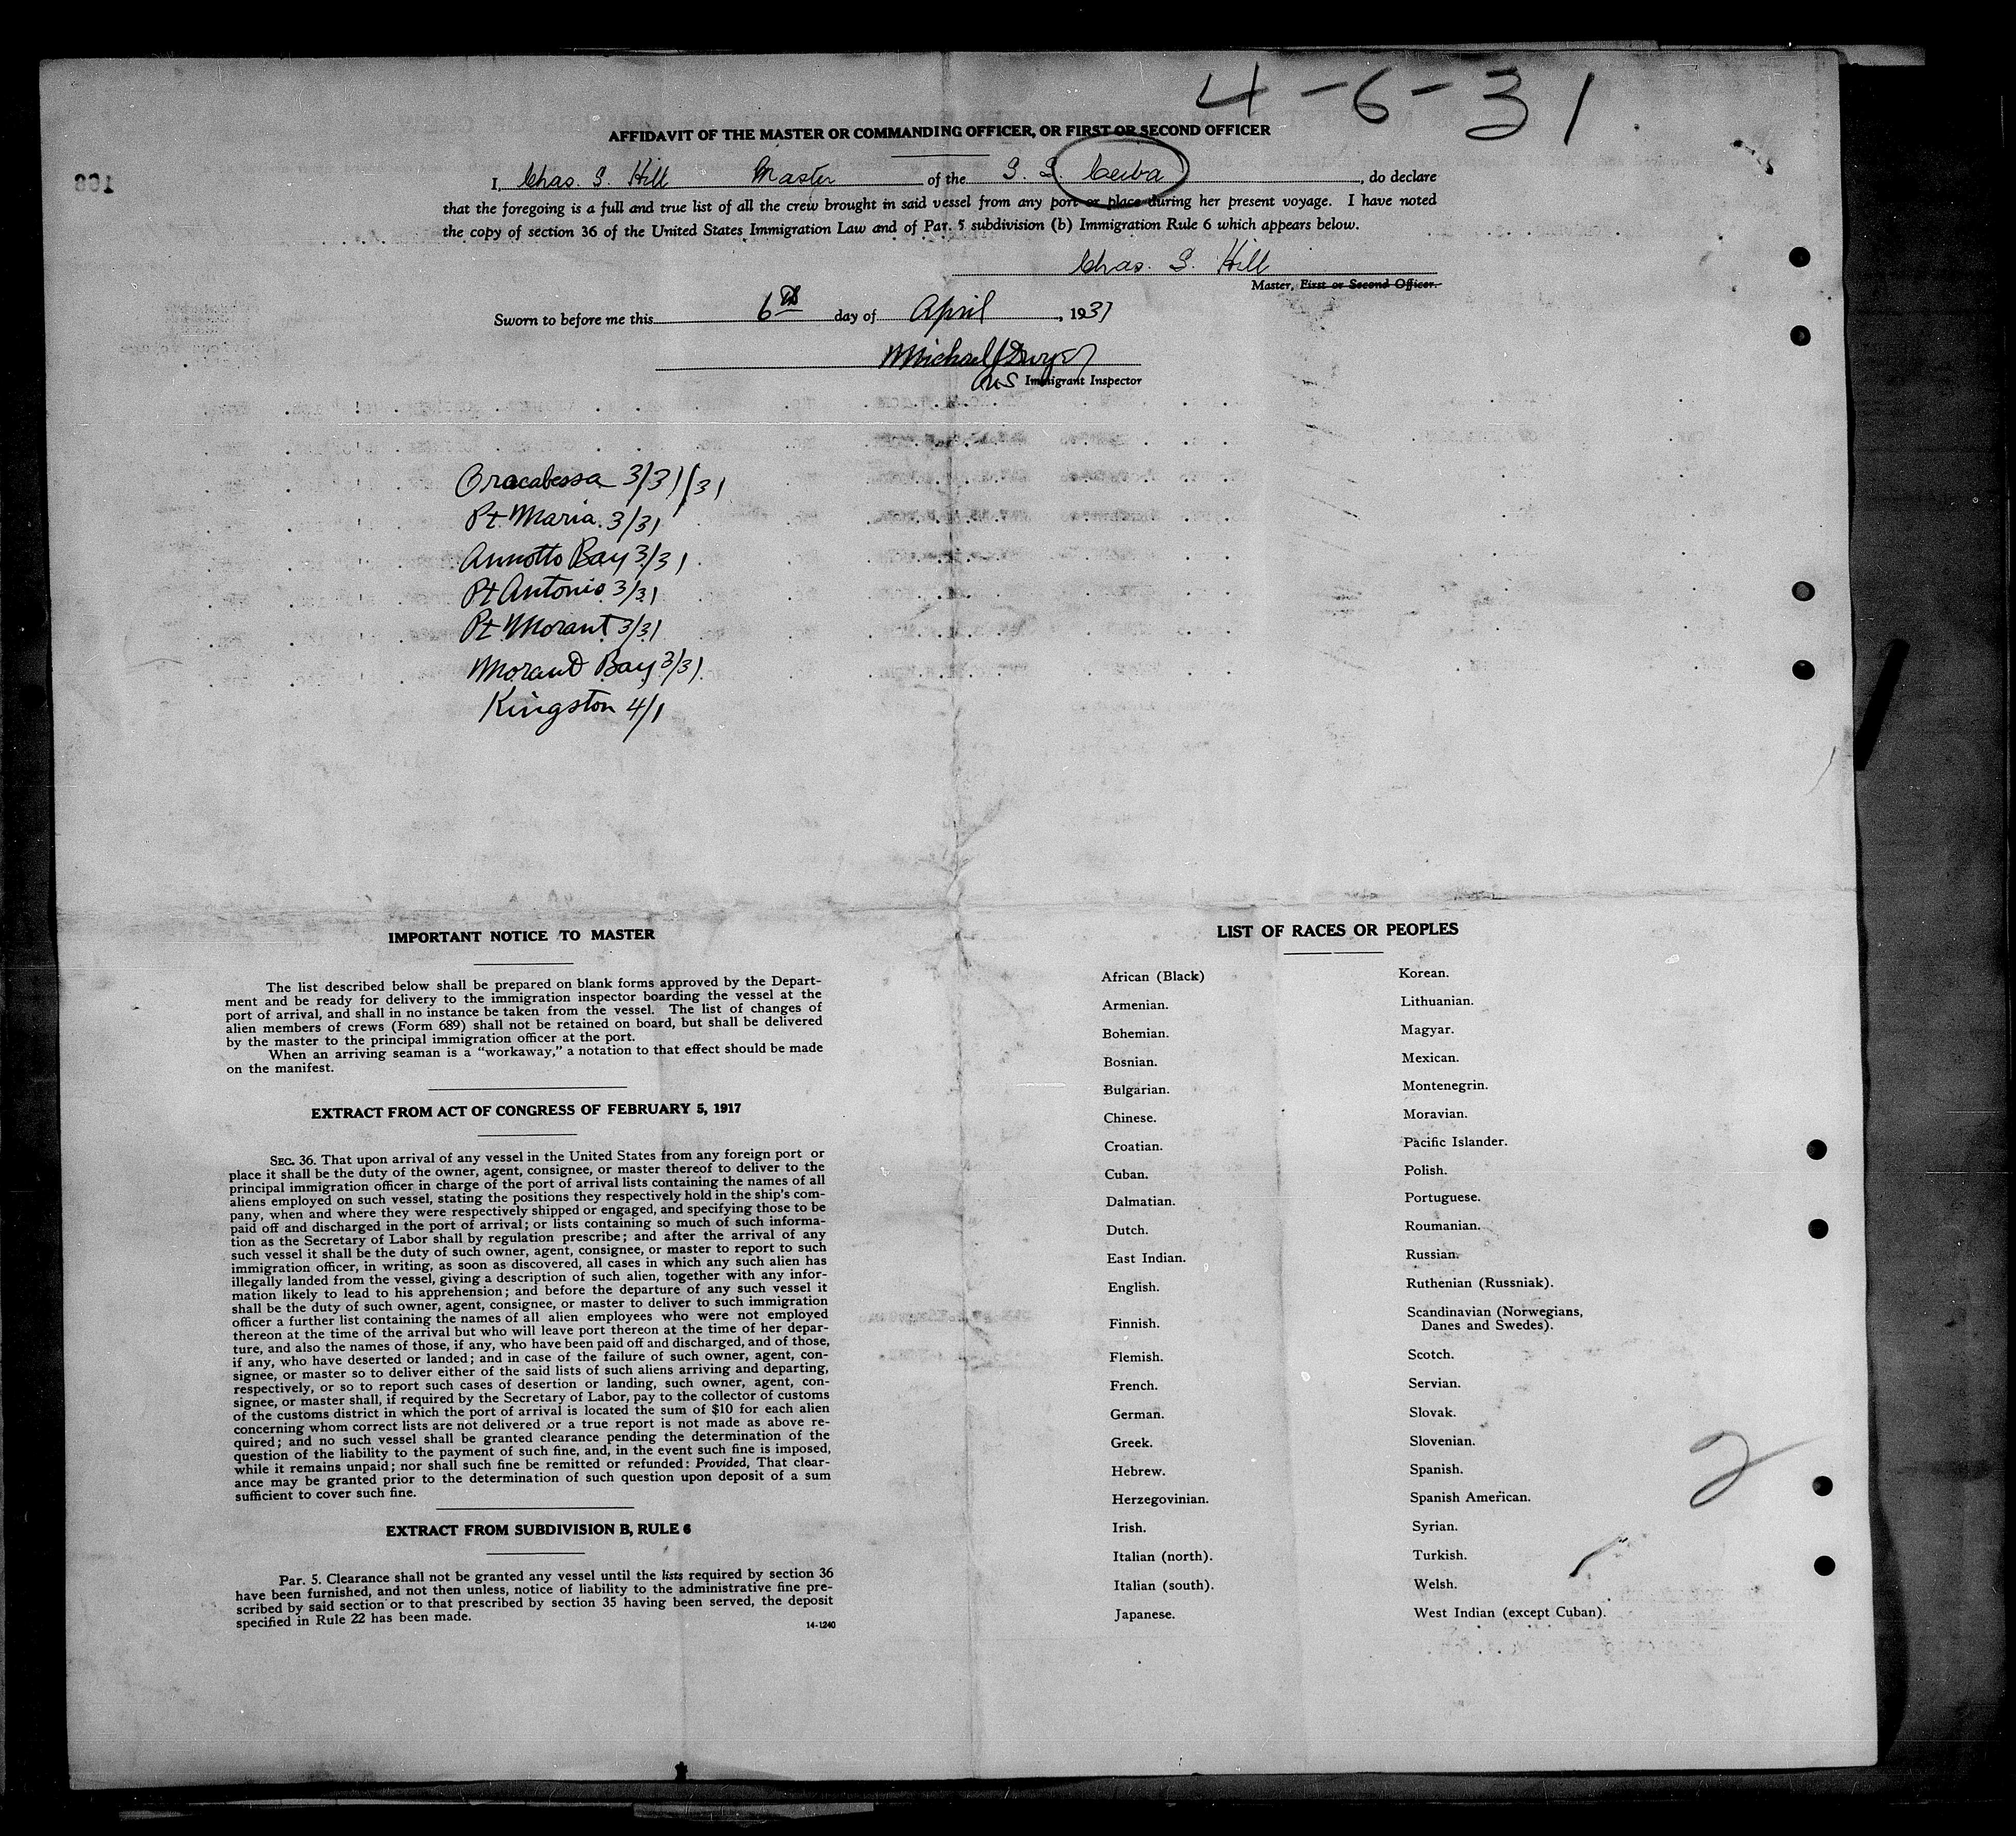 4-6-31
AFFIDAVIT OF THE MASTER OR COMMANDING OFFICER, OR FIRST OR SECOND OFFICER
I, Chas. S. Hill Master of the S. S. Ceiba, do declare
that the foregoing is a full and true list of all the crew brought in said vessel from any port or place during her present voyage. I have noted
the copy of section 36 of the United States Immigration Law and of Par. 5 subdivision (b) Immigration Rule 6 which appears below.
Chas. S. Hill
Master, First or Second Officer.
Sworn to before me this 6th day of April, 1931
Michael J Dwyer
Immigrant Inspector
Oracabessa 3/31/31
Pt Maria. 3/31
Annotto Bay 3/31
Pt Antonio 3/31
Pt Morant 3/31
Morant Bay 3/31
Kingston 4/1
IMPORTANT NOTICE TO MASTER
The list described below shall be prepared on blank forms approved by the Depart-
ment and be ready for delivery to the immigration inspector boarding the vessel at the
port of arrival, and shall in no instance be taken from the vessel. The list of changes of
alien members of crews (Form 689) shall not be retained on board, but shall be delivered
by the master to the principal immigration officer at the port.
When an arriving seaman is a "workaway," a notation to that effect should be made
on the manifest.
EXTRACT FROM ACT OF CONGRESS OF FEBRUARY 5, 1917
SEC. 36. That upon arrival of any vessel in the United States from any foreign port or
place it shall be the duty of the owner, agent, consignee, or master thereof to deliver to the
principal immigration officer in charge of the port of arrival lists containing the names of all
aliens employed on such vessel, stating the positions they respectively hold in the ship's com-
pany, when and where they were respectively shipped or engaged, and specifying those to be
paid off and discharged in the port of arrival; or lists containing so much of such informa-
tion as the Secretary of Labor shall by regulation prescribe; and after the arrival of any
such vessel it shall be the duty of such owner, agent, consignee, or master to report to such
immigration officer, in writing, as soon as discovered, all cases in which any such alien has
illegally landed from the vessel, giving a description of such alien, together with any infor-
mation likely to lead to his apprehension; and before the departure of any such vessel it
shall be the duty of such owner, agent, consignee, or master to deliver to such immigration
officer a further list containing the names of all alien employees who were not employed
thereon at the time of the arrival but who will leave port thereon at the time of her depar-
ture, and also the names of those, if any, who have been paid off and discharged, and of those,
if any, who have deserted or landed; and in case of the failure of such owner, agent, con-
signee, or master so to deliver either of the said lists of such aliens arriving and departing,
respectively, or so to report such cases of desertion or landing, such owner, agent, con-
signee, or master shall, if required by the Secretary of Labor, pay to the collector of customs
of the customs district in which the port of arrival is located the sum of $10 for each alien
concerning whom correct lists are not delivered or a true report is not made as above re-
quired; and no such vessel shall be granted clearance pending the determination of the
question of the liability to the payment of such fine, and, in the event such fine is imposed,
while it remains unpaid; nor shall such fine be remitted or refunded: Provided, That clear-
ance may be granted prior to the determination of such question upon deposit of a sum
sufficient to cover such fine.
EXTRACT FROM SUBDIVISION B, RULE 6
Par. 5. Clearance shall not be granted any vessel until the lists required by section 36
have been furnished, and not then unless, notice of liability to the administrative fine pre-
scribed by said section or to that prescribed by section 35 having been served, the deposit
specified in Rule 22 has been made.
14-1240
LIST OF RACES OR PEOPLES
African (Black)
Armenian.
Bohemian.
Bosnian.
Bulgarian.
Chinese.
Croatian.
Cuban.
Dalmatian.
Dutch.
East Indian.
English.
Finnish.
Flemish.
French.
German.
Greek.
Hebrew.
Herzegovinian.
Irish.
Italian (north).
Italian (south).
Japanese.
Korean.
Lithuanian.
Magyar.
Mexican.
Montenegrin.
Moravian.
Pacific Islander.
Polish.
Portuguese.
Roumanian.
Russian.
Ruthenian (Russniak).
Scandinavian (Norwegians,
Danes and Swedes).
Scotch.
Servian.
Slovak.
Slovenian.
Spanish.
Spanish American.
Syrian.
Turkish.
Welsh.
West Indian (except Cuban).
2